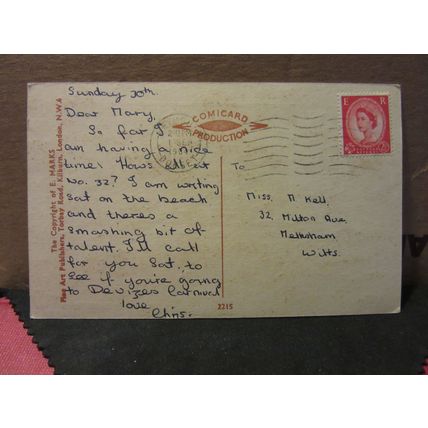 Sunday 30th.
Dear Mary,
So far I
am having a nice
time! Hows all at
No. 32? I am writing
sat on the beach
and theres a
smashing bit of
talent. I'll call
for you Sat, to
see if you're going
to Devizes Carnival
love
Chris.
COMICARD
PRODUCTION
To
Miss. M Kell.
32, Milton Ave,
Melksham
Wilts.
E R
The Copyright of E. MARKS
Fine Art Publishers, Torbay Road, Kilburn, London, N.W.6
2215